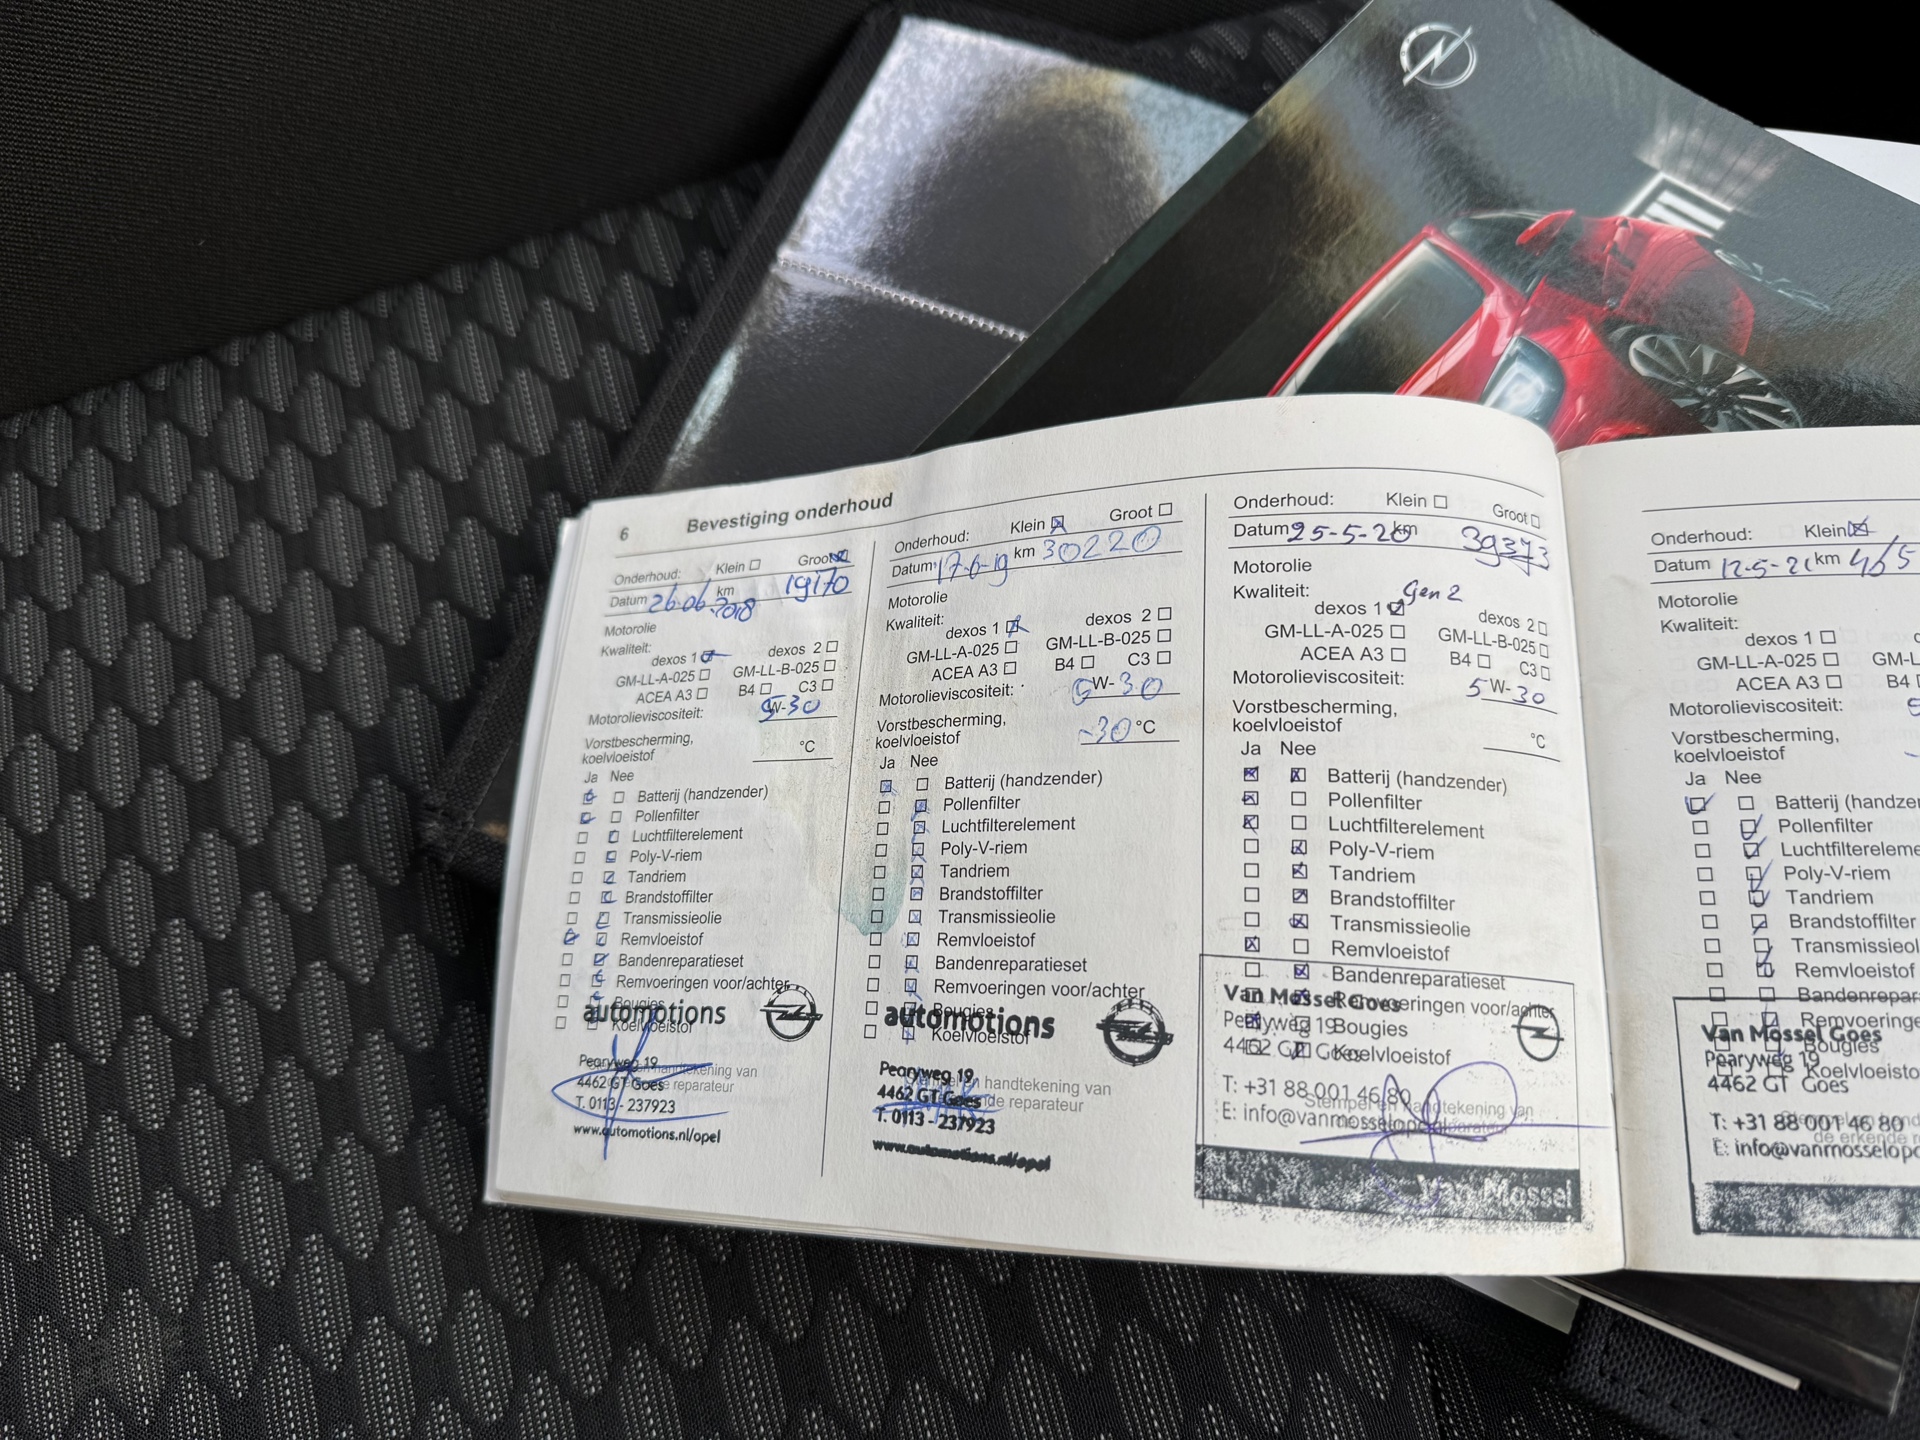 6 Bevestiging onderhoud
Onderhoud: Klein Groot
Datum 26-06-2018 km 19170
Motorolie
Kwaliteit:
dexos 1 dexos 2
GM-LL-A-025 GM-LL-B-025
ACEA A3 B4 C3
Motorolieviscositeit: 5W-30
Vorstbescherming,
koelvloeistof °C
Ja Nee
Batterij (handzender)
Pollenfilter
Luchtfilterelement
Poly-V-riem
Tandriem
Brandstoffilter
Transmissieolie
Remvloeistof
Bandenreparatieset
Remvoeringen voor/achter
Bougies
Koelvloeistof
automotions
Pearyweg 19
4462 GT Goes
T. 0113 - 237923
www.automotions.nl/opel
Onderhoud: Klein Groot
Datum 17-6-19 km 30220
Motorolie
Kwaliteit:
dexos 1 dexos 2
GM-LL-A-025 GM-LL-B-025
ACEA A3 B4 C3
Motorolieviscositeit: 5W-30
Vorstbescherming,
koelvloeistof -30 °C
Ja Nee
Batterij (handzender)
Pollenfilter
Luchtfilterelement
Poly-V-riem
Tandriem
Brandstoffilter
Transmissieolie
Remvloeistof
Bandenreparatieset
Remvoeringen voor/achter
Bougies
Koelvloeistof
automotions
Pearyweg 19
4462 GT Goes
Stempel en handtekening van
de erkende reparateur
T. 0113 - 237923
www.automotions.nl/opel
Onderhoud: Klein Groot
Datum 25-5-20 km 39373
Motorolie
Kwaliteit: Gen 2
dexos 1 dexos 2
GM-LL-A-025 GM-LL-B-025
ACEA A3 B4 C3
Motorolieviscositeit: 5W-30
Vorstbescherming,
koelvloeistof °C
Ja Nee
Batterij (handzender)
Pollenfilter
Luchtfilterelement
Poly-V-riem
Tandriem
Brandstoffilter
Transmissieolie
Remvloeistof
Bandenreparatieset
Remvoeringen voor/achter
Bougies
Koelvloeistof
Van Mossel Goes
Pearyweg 19
4462 GT Goes
T: +31 88 001 46 80
Stempel en handtekening van
E: info@vanmosselopel
Van Mossel
Onderhoud: Klein
Datum 12-5-21 km 465
Motorolie
Kwaliteit:
dexos 1
GM-LL-A-025 GM-L
ACEA A3 B4
Motorolieviscositeit:
Vorstbescherming,
koelvloeistof
Ja Nee
Batterij (handzen
Pollenfilter
Luchtfiltereleme
Poly-V-riem
Tandriem
Brandstoffilter
Transmissieol
Remvloeistof
Bandenrepar
Remvoeringe
Bougies
Koelvloeisto
Van Mossel Goes
Pearyweg 19
4462 GT Goes
T: +31 88 001 46 80
E: info@vanmosselope